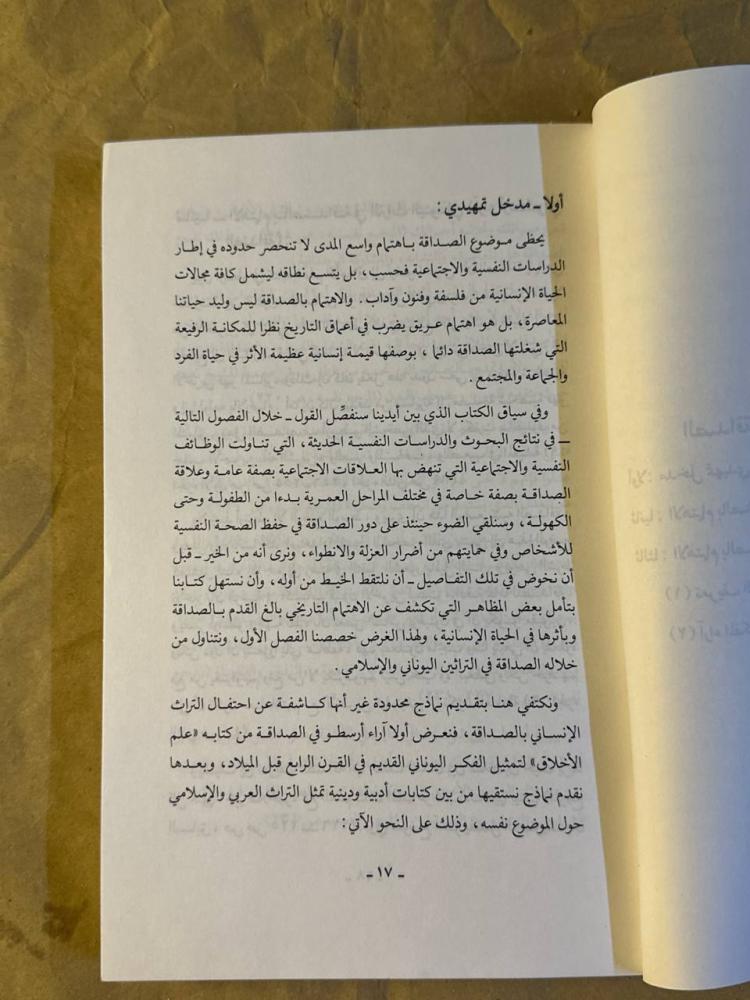 أولا ـ مدخل تمهيدي :
يحظى موضوع الصداقة باهتمام واسع المدى لا تنحصر حدوده في إطار
الدراسات النفسية والاجتماعية فحسب، بل يتسع نطاقه ليشمل كافة مجالات
الحياة الإنسانية من فلسفة وفنون وآداب. والاهتمام بالصداقة ليس وليد حياتنا
المعاصرة، بل هو اهتمام عريق يضرب في أعماق التاريخ نظرا للمكانة الرفيعة
التي شغلتها الصداقة دائما، بوصفها قيمة إنسانية عظيمة الأثر في حياة الفرد
والجماعة والمجتمع.
وفي سياق الكتاب الذي بين أيدينا سنفصِّل القول ـ خلال الفصول التالية
ـ في نتائج البحوث والدراسات النفسية الحديثة، التي تناولت الوظائف
النفسية والاجتماعية التي تنهض بها العلاقات الاجتماعية بصفة عامة وعلاقة
الصداقة بصفة خاصة في مختلف المراحل العمرية بدءا من الطفولة وحتى
الكهولة، وسنلقي الضوء حينئذ على دور الصداقة في حفظ الصحة النفسية
للأشخاص وفي حمايتهم من أضرار العزلة والانطواء، ونرى أنه من الخير ـ قبل
أن نخوض في تلك التفاصيل ـ أن نلتقط الخيط من أوله، وأن نستهل كتابنا
بتأمل بعض المظاهر التي تكشف عن الاهتمام التاريخي بالغ القدم بالصداقة
وبأثرها في الحياة الإنسانية، ولهذا الغرض خصصنا الفصل الأول، ونتناول من
خلاله الصداقة في التراثين اليوناني والإسلامي.
ونكتفي هنا بتقديم نماذج محدودة غير أنها كاشفة عن احتفال التراث
الإنساني بالصداقة، فنعرض أولا آراء أرسطو في الصداقة من كتابه «علم
الأخلاق» لتمثيل الفكر اليوناني القديم في القرن الرابع قبل الميلاد، وبعدها
نقدم نماذج نستقيها من بين كتابات أدبية ودينية تمثل التراث العربي والإسلامي
حول الموضوع نفسه، وذلك على النحو الآتي:
ـ ١٧ ـ